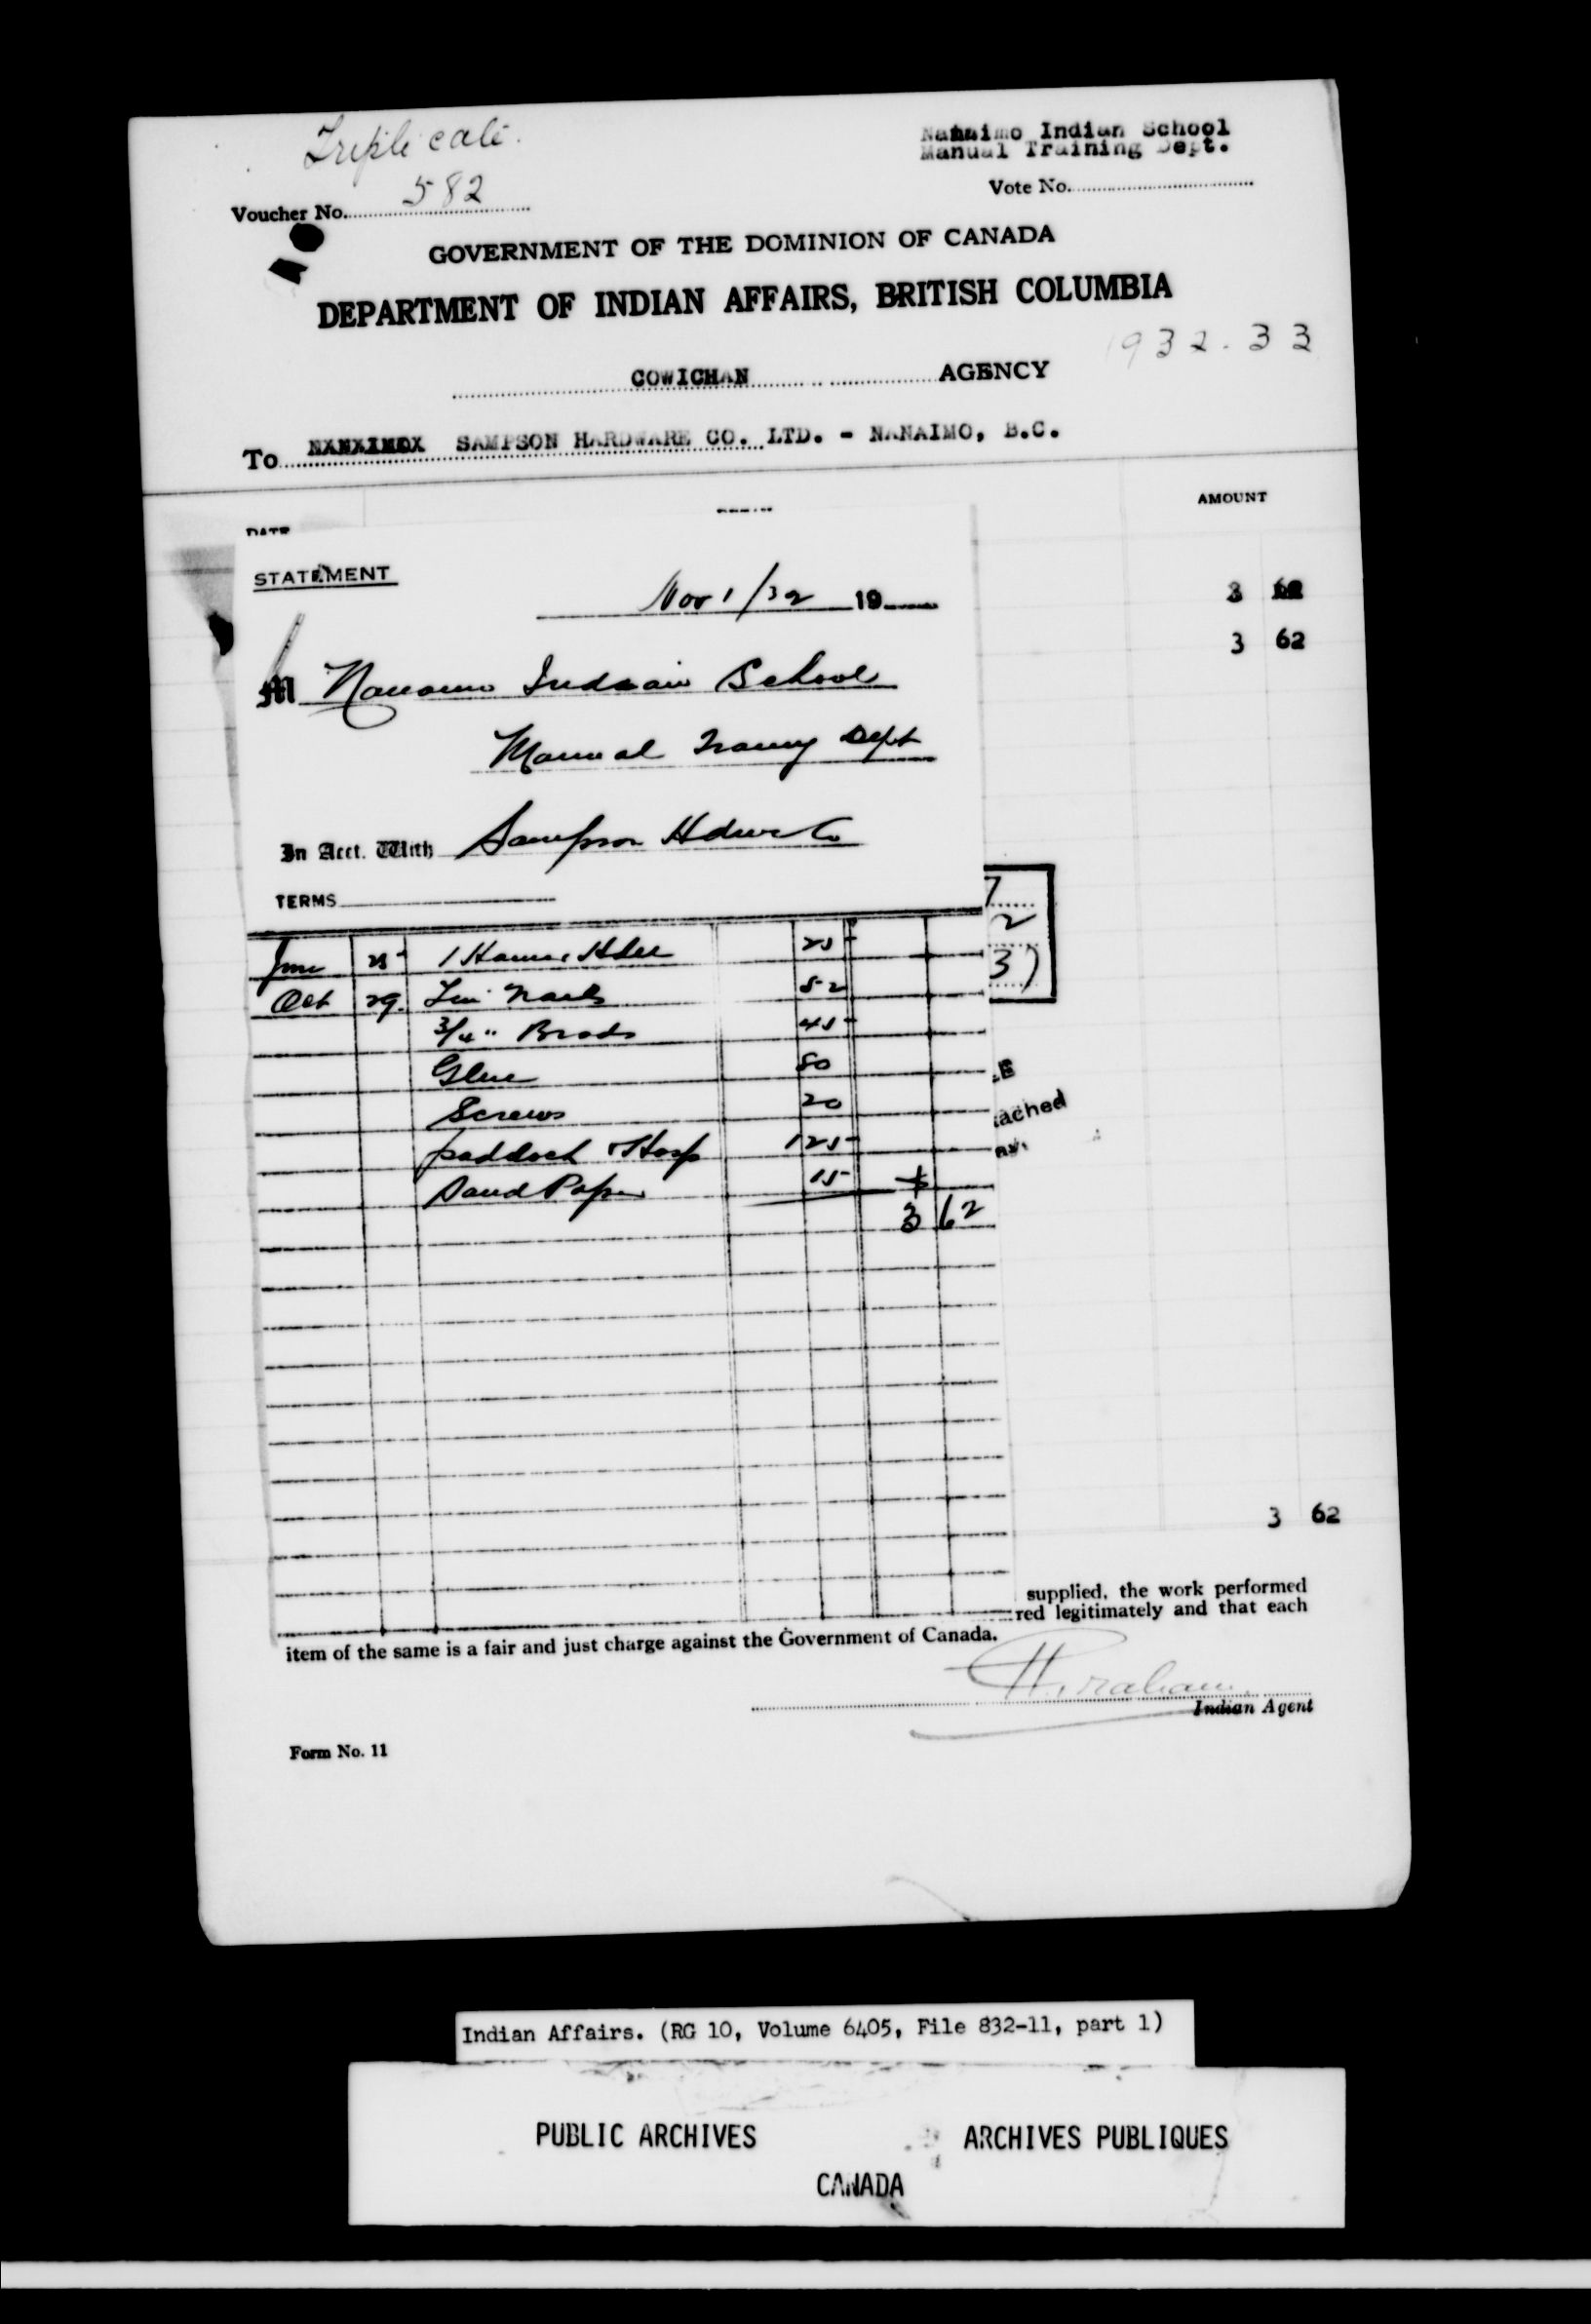 Triplicate.
Nanaimo Indian School
Manual Training Dept.
Voucher No. 582
Vote No.
GOVERNMENT OF THE DOMINION OF CANADA
DEPARTMENT OF INDIAN AFFAIRS, BRITISH COLUMBIA
1932.33
COWICHAN AGENCY
To SAMPSON HARDWARE CO. LTD. - NANAIMO, B.C.
DATE
AMOUNT
STATEMENT
Nov 1/32 19
3 62
3 62
M Nanaimo Indian School
Manual Traing Dept
In Acct. With Sampson Hdwr Co
TERMS
7
2
37
June 25 1 Hammer Hdle 25
Oct 29. Fin Nails 52
3/4" Brads 45
Glue 80
Screws 20
ached
paddock & Hasp 125
Sand Paper 15
3 62
3 62
supplied, the work performed
red legitimately and that each
item of the same is a fair and just charge against the Government of Canada.
Indian Agent
Form No. 11
Indian Affairs. (RG 10, Volume 6405, File 832-11, part 1)
PUBLIC ARCHIVES ARCHIVES PUBLIQUES
CANADA